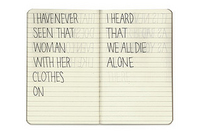 I HAVE NEVER
SEEN THAT
WOMAN
WITH HER
CLOTHES
ON
I HEARD
THAT
WE ALL DIE
ALONE